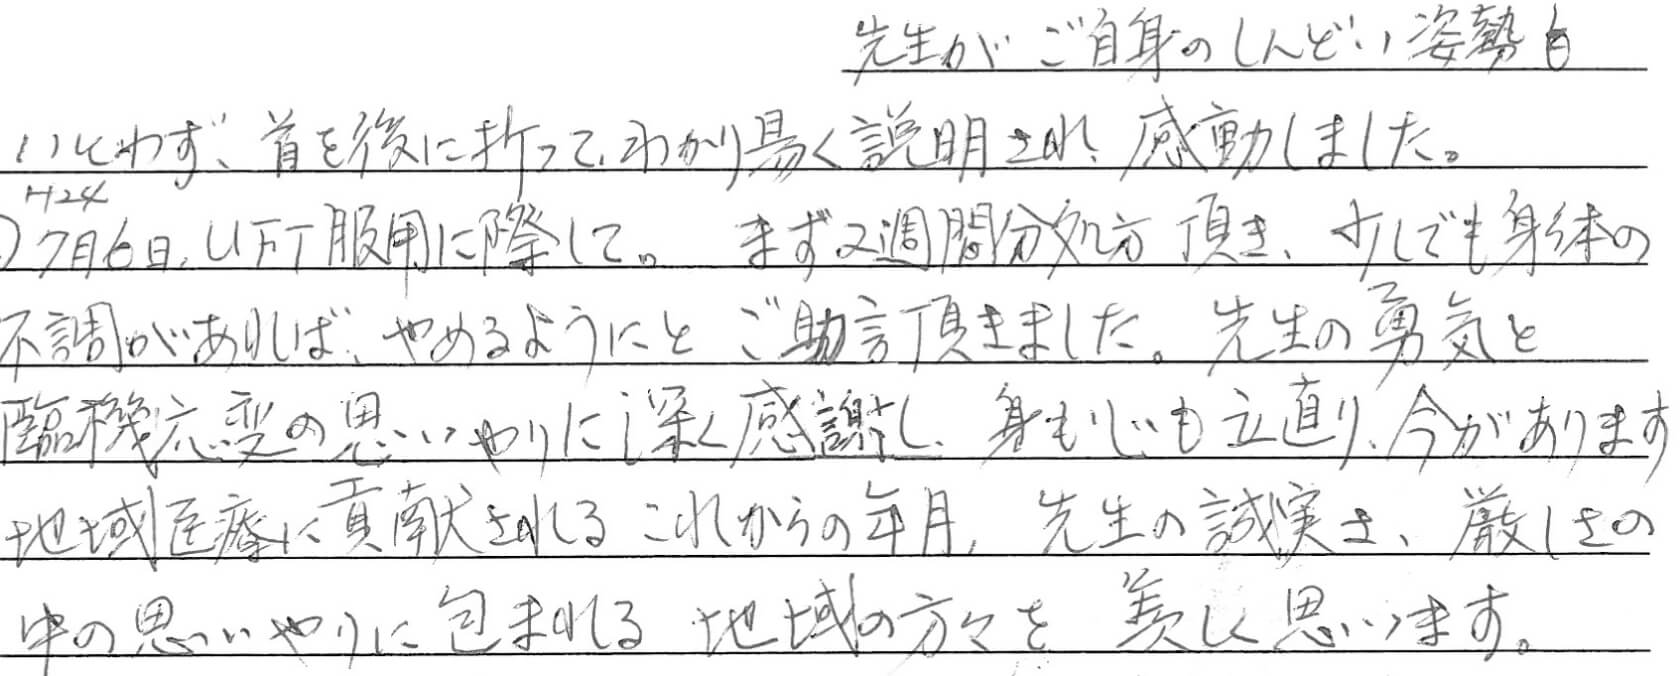 先生がご自身のしんどい姿勢も
いとわず、首を後に折って、わかり易く説明され、感動しました。
H24
7月6日、UFT服用に際して。 まず2週間分処方頂き、少しでも身体の
不調があれば、やめるようにとご助言頂きました。先生の勇気と
臨機応変の思いやりに深く感謝し、身も心も立直り、今があります
地域医療に貢献されるこれからの年月、先生の誠実さ、厳しさの
中の思いやりに包まれる地域の方々を羨しく思います。